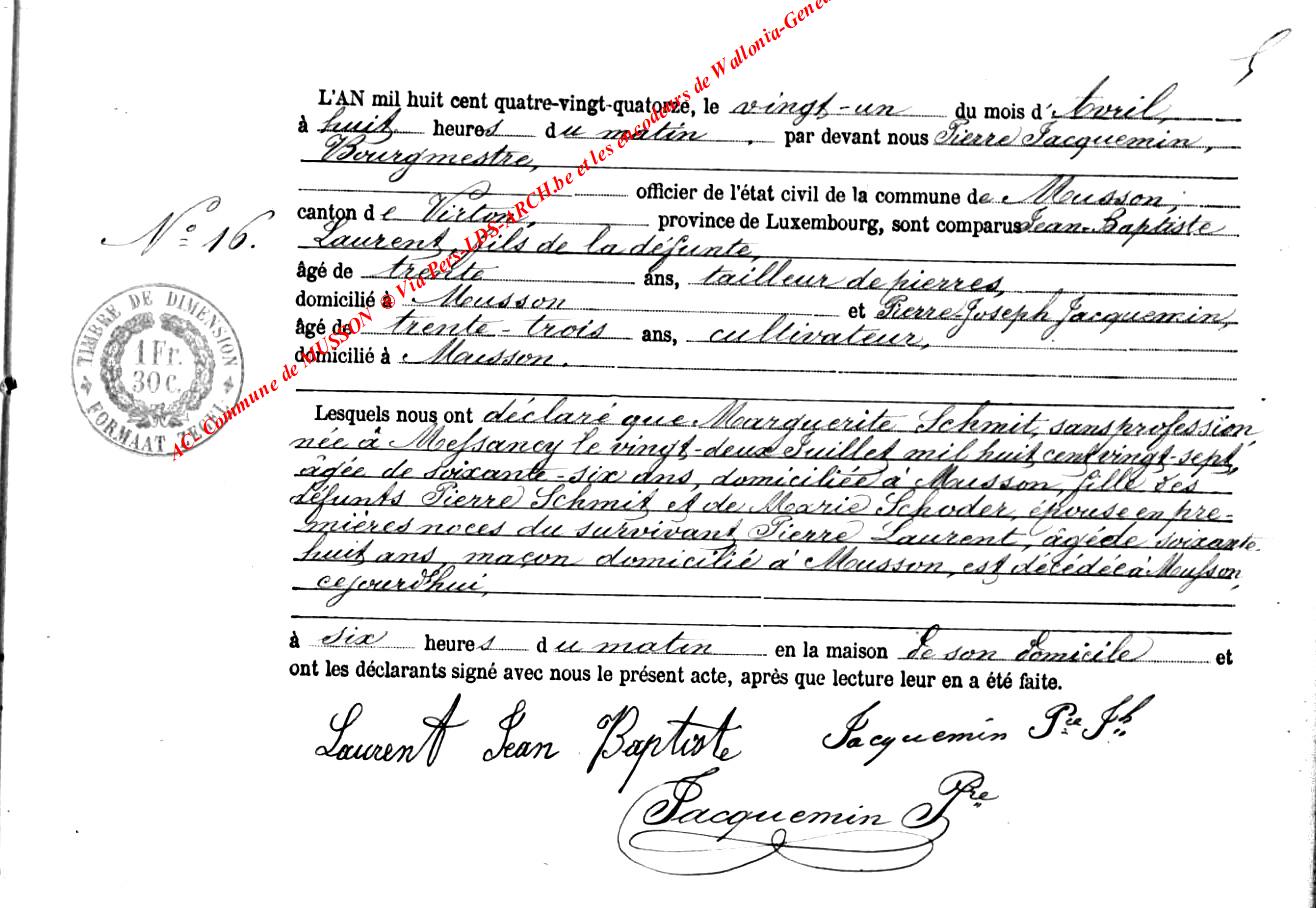 5
L'AN mil huit cent quatre-vingt-quatorze, le vingt-un du mois d'Avril,
à huit heures du matin, par devant nous Pierre Jacquemin,
Bourgmestre,
officier de l'état civil de la commune de Musson,
canton de Virton, province de Luxembourg, sont comparus Jean-Baptiste
Laurent, fils de la défunte,
âgé de trente ans, tailleur de pierres,
domicilié à Musson et Pierre-Joseph Jacquemin,
âgé de trente-trois ans, cultivateur,
domicilié à Musson.
N° 16.
TIMBRE DE DIMENSION
1 Fr.
30 c.
FORMAAT ZEGEL
Lesquels nous ont déclaré que Marguerite Schmit, sans profession,
née à Messancy le vingt-deux Juillet mil huit cent vingt-sept,
âgée de soixante-six ans, domiciliée à Musson, fille des
défunts Pierre Schmit et de Marie Schoder, épouse en pre-
mières noces du survivant Pierre Laurent, âgé de soixante-
huit ans, maçon domicilié à Musson, est décédée à Musson,
cejourd'hui,
à six heures du matin en la maison de son domicile et
ont les déclarants signé avec nous le présent acte, après que lecture leur en a été faite.
Laurent Jean Baptiste Jacquemin Pre Jh
Jacquemin Pre
ACL Commune de MUSSON © Via Pers-LDS-ARCH.be et les encodeurs de Wallonia-Genea